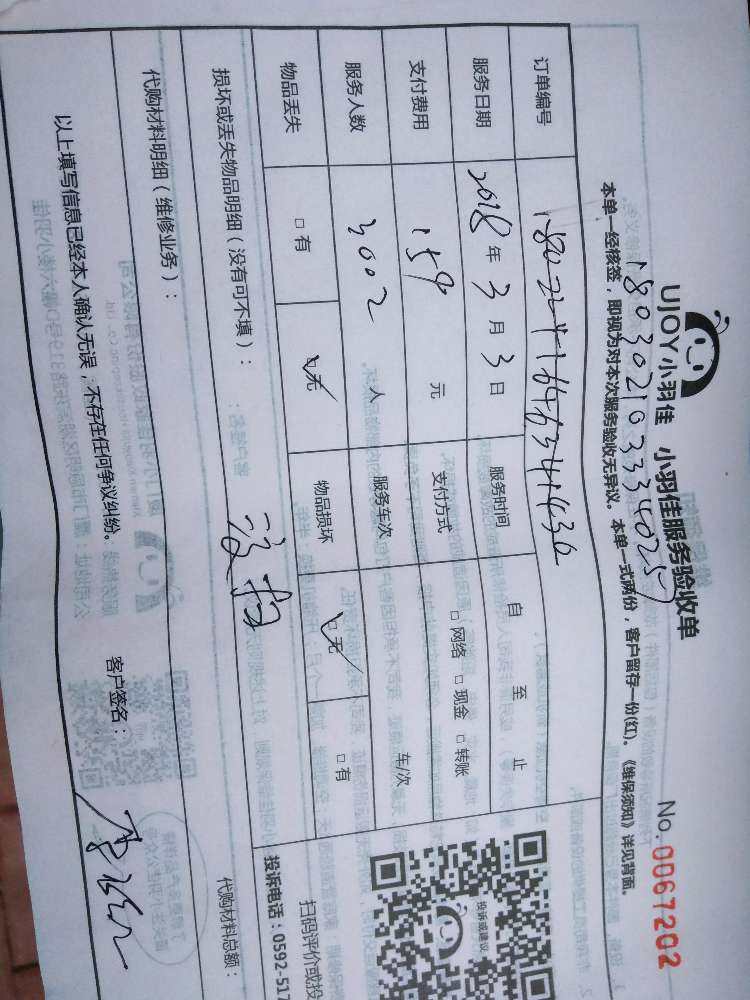 UJOY小羽佳 小羽佳服务验收单 No.0067202
180302103334025
本单一经核签，即视为对本次服务验收无异议。本单一式两份，客户留存一份(红)。《维保须知》详见背面。
订单编号
服务日期 2018年3月3日 服务时间 自 至 止
支付费用 159元 支付方式 □网络 □现金 □转账
服务人数 3002人 服务车次 车/次
物品丢失 □有 ☑无 物品损坏 ☑无 □有
投诉或建议
扫码评价或投
投诉电话：0592-517
损坏或丢失物品明细（没有可不填）：
代购材料明细（维修业务）： 代购材料总额：
以上填写信息已经本人确认无误，不存在任何争议纠纷。 客户签名：